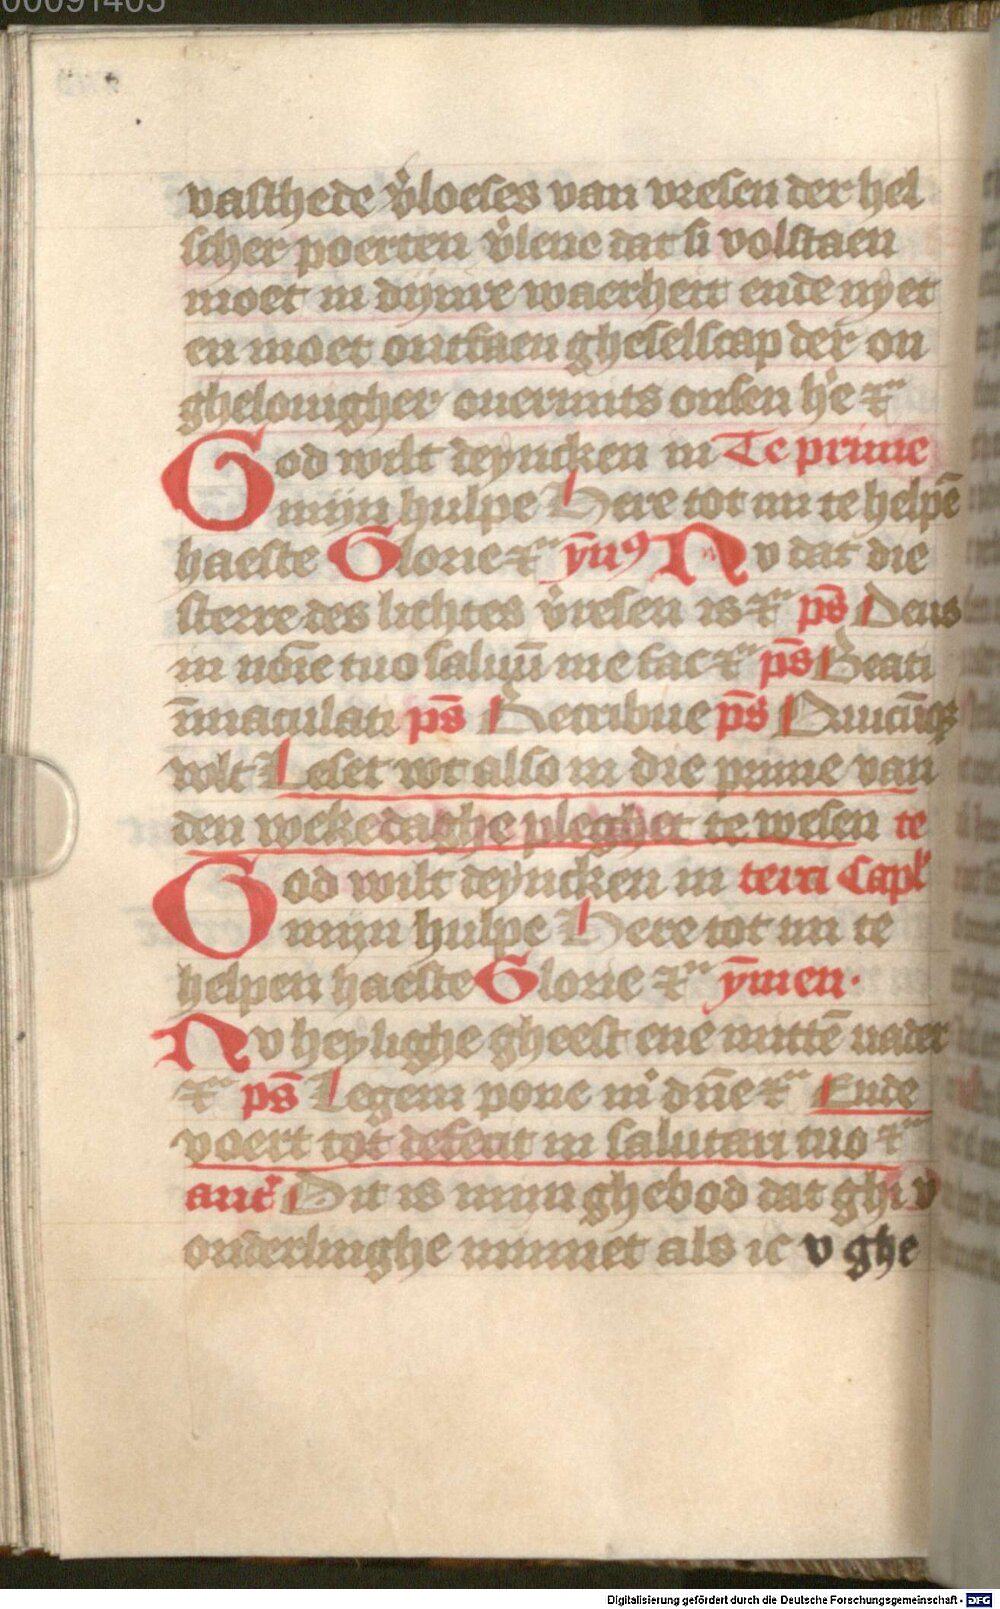 00091405
vasthede v̛loeses van vresen der hel
scher poerten v̛lene dat si volstaen
moet in dijnre waerheit ende nyet
en moet ontfaen gheselscap der on
ghelouigher ouermits onsen h̛e ⁊c̃
God wilt deyncken in Te prime
mijn hulpe Here tot mi te helpē
haeste Glorie ⁊c̃ ȳn9 Nv dat die
sterre des lichtes v̛resen is ⁊c̃ ps̄ Deus
in noīe tuo saluū me fac ⁊c̃ ps̄ Beati
īmaculati ps̄ Retribue ps̄ Quicūqꝫ
wlt Leset wt also in die prime van
den wekedaghe pleghet te wesen te
God wilt deyncken in terci Capl'
mijn hulpe Here tot mi te
helpen haeste Glorie ⁊c̃ ȳmen·
Nv heylighe gheest ene mittē uader
⁊c̃ ps̄ Legem pone m' dn̄e ⁊c̃ Ende
voert tot defecit in salutari tuo ⁊c̃
ant̛ Dit is mijn ghebod dat ghi v
onderlinghe minnet als ic v ghe
Digitalisierung gefördert durch die Deutsche Forschungsgemeinschaft - DFG